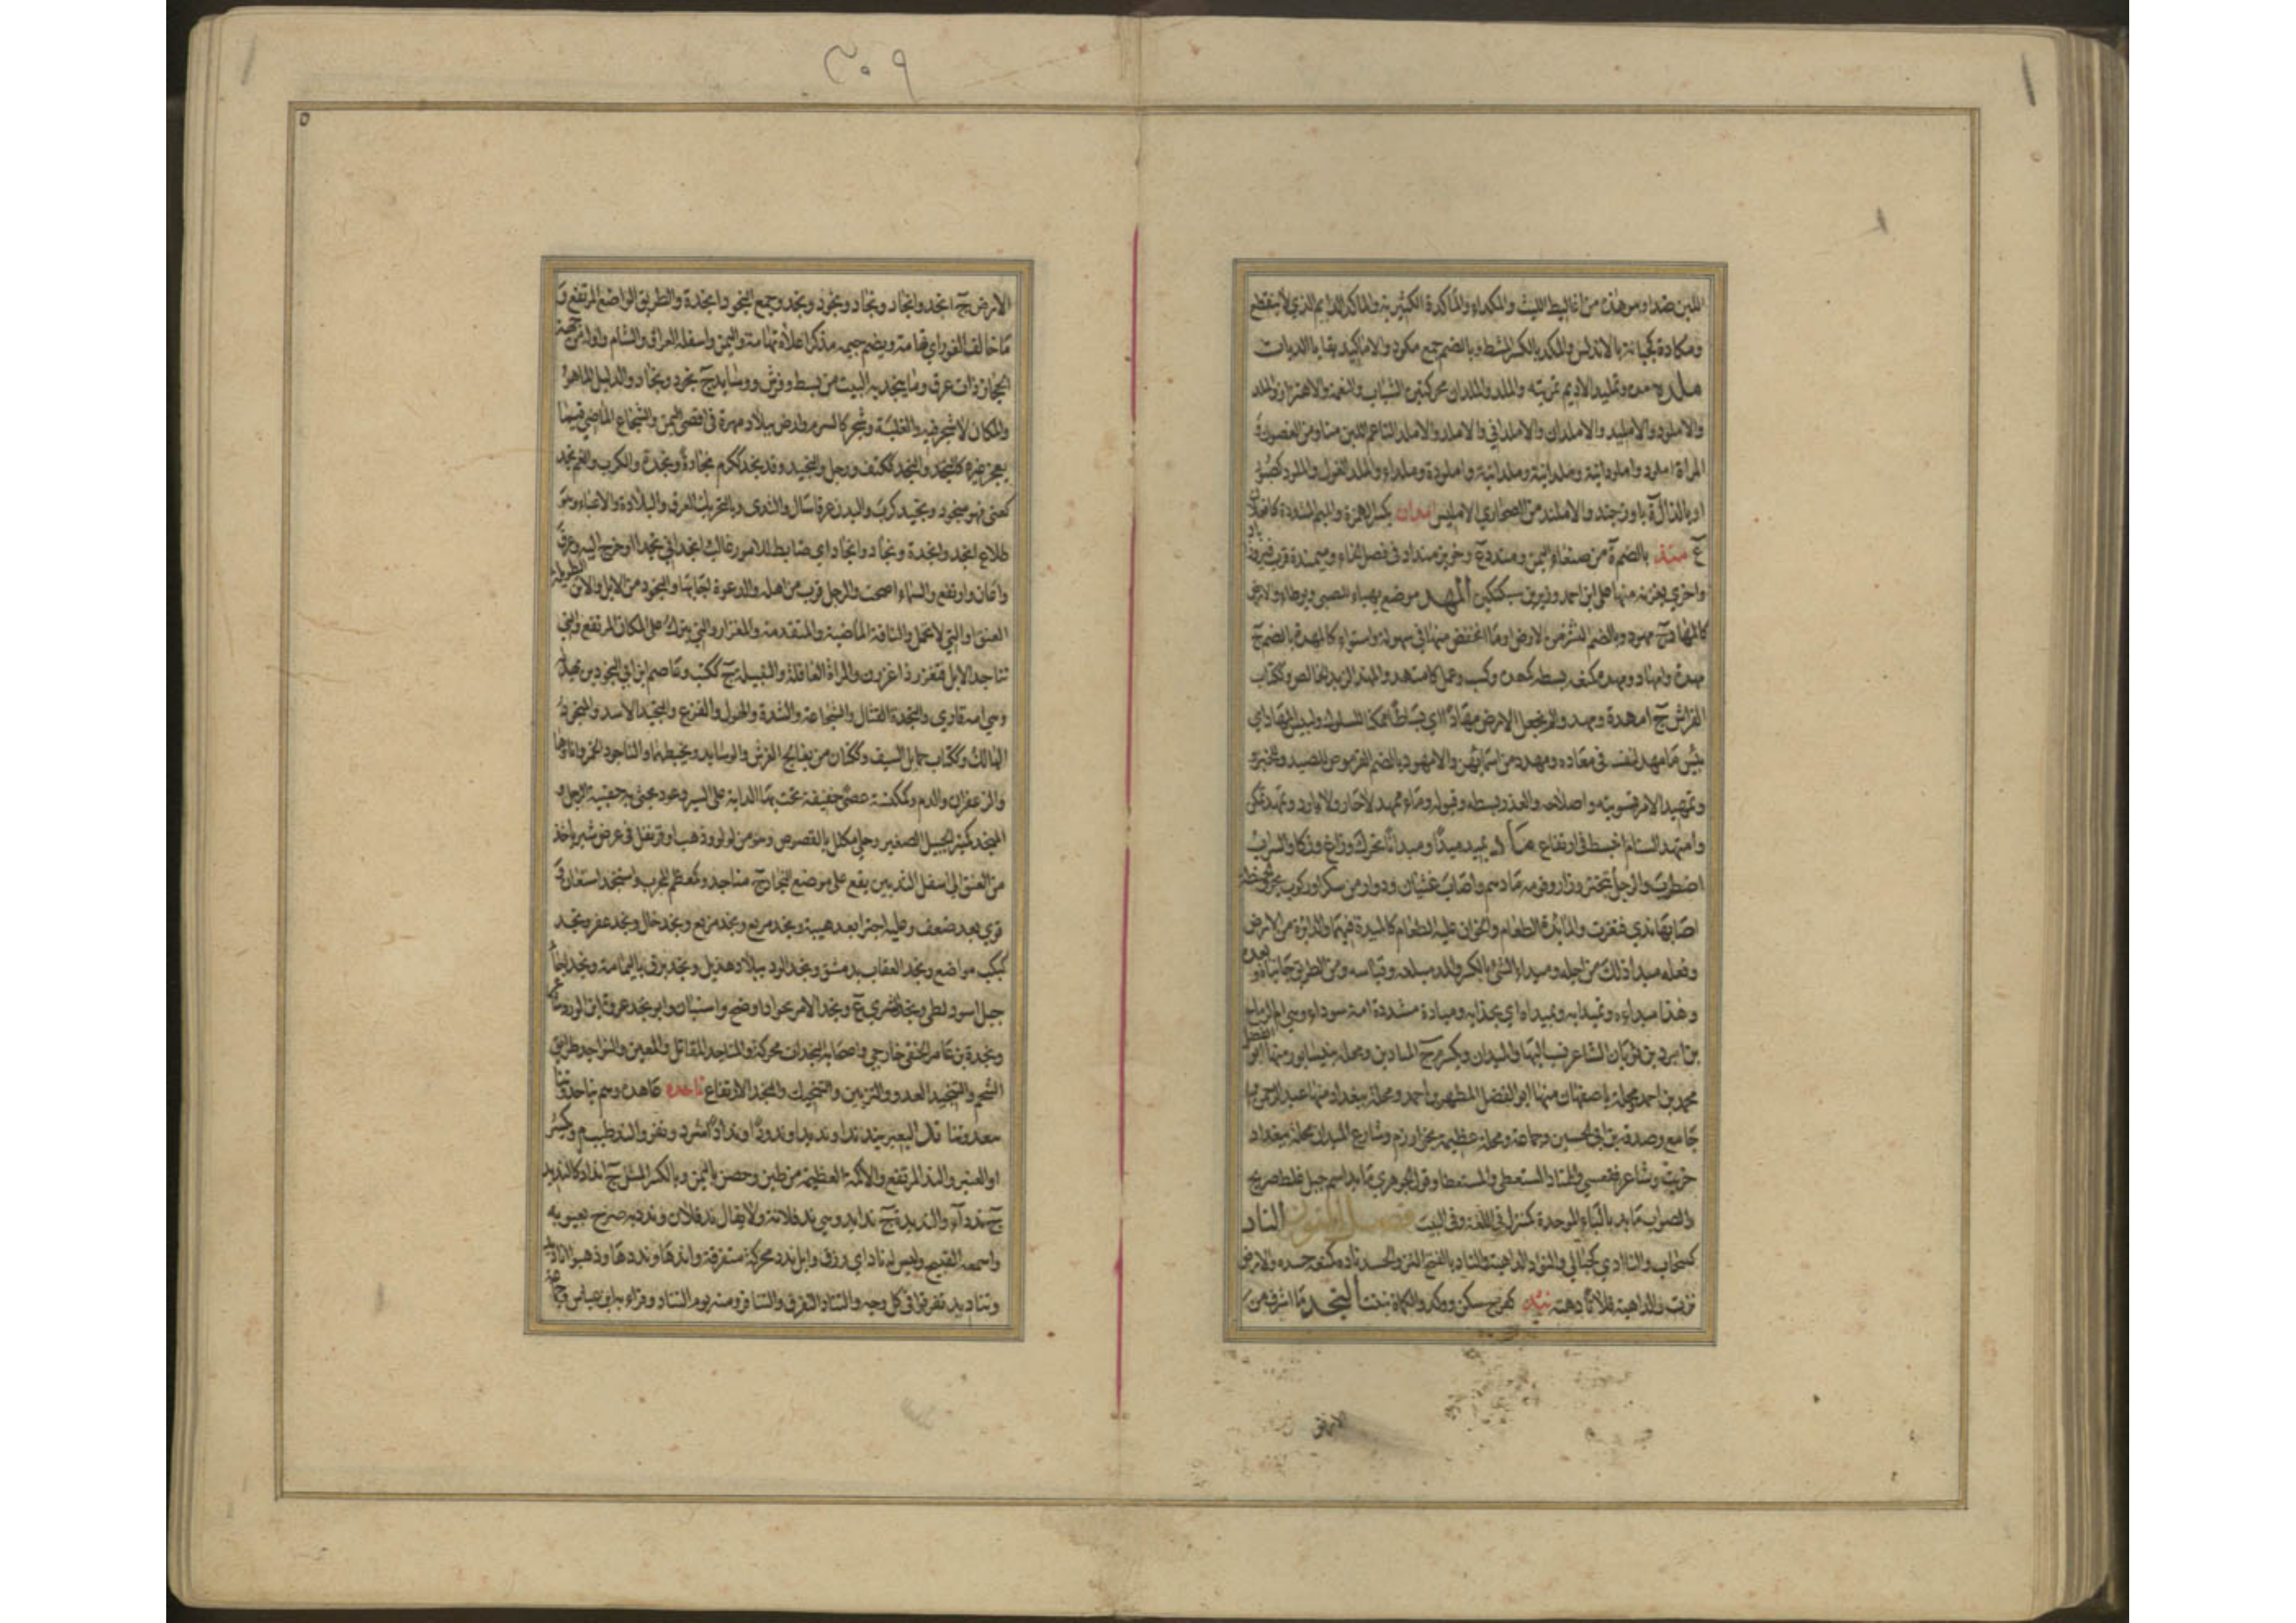 اللبن ضدا ومن هذه من اغاليط الليث والمكداء والماكدة الكثيرته والماكد الدايم الذي لا ينقطع
ومكادة كجبانة بالاندلس والمكد بالكسر المشط وبالضم جمع مكود والاماكيد بقايا الديات
ملده مده وتمليد الاديم تمريته والملد والملدان محركتين الشباب والنعمة والاهتزاز والملد
والاملود والامليد والاملدان والاملداني والاملد والاملد الناعم اللين منا ومن الغصون
المراة املود واملودانية وملدانية وملدانية واملودة وملداء والملد الغول والملود كصبور
او بالذال ة باوزجند والاملند من الصحاري الامليس امدان بكسر الهمزة والميم المشددة
ع ميند بالضم ة من صنعاء اليمن ومندد ع وخويز منداد في فصل الخاء وميمندة قرب فيروزاباد
واخري بغزنة منها علي ابن احمد وزير بن سبكتكين المهد موضع يهياء للصبي ويوطاء والارض
كالمهاد ج مهود وبالضم النشز من الارض او ما انخفض منها في سهولة واستواء كالمهدة بالضم ج
مهدة وامهاد ومهده كمنعه بسطه كمهده وكسب وعمل كامتهد والمهد الزبد الخالص وككتاب
الفراش ج امهدة ومهد والم نجعل الارض مهادا اي بساطا ممكنا للسلوك ولبيس المهاد اي
بيس ما مهد لنفسه في معاده ومهدد من اسمائهن والامهود بالضم القرموص للصيد وللخبز
وتمهيد الامر تسويته واصلاحه والعذر بسطه وقبوله وماء ممهد لاحار ولا بارد وتمهد تمكن
وامتهد السنام انبسط في ارتفاع ماد يميد ميدا وميدانا تحرك وزاغ وزكا والسراب
اضطرب والرجل تبختر وزار وقومه مادهم واصابه غثيان ودوار من سكر او ركوب بحر والحنظلة
اصابها ندي فتغيرت والمائدة الطعام والخوان عليه الطعام كالميدة فيهما والدائرة من الارض
وفعله ميدا ذلك من اجله وميداء الشئ بالكسر والمد مبلغه وقياسه ومن الطريق جانباه وبعده
وهذا ميداءه وبميدايه وبميداه اي بحذايه وميادة مشددة امة سوداء وهي ام الرماح
بن ابرد بن ثوبان الشاعر نسب اليها والميدان ويكسر م ج الميادين ومحلة بنيسابور منها ابو الفضل
محمد بن احمد ومحلة باصفهان منها ابو الفضل المطهر بن احمد ومحلة ببغداد منها عبد الرحمن بن
جامع وصدقة بن ابي الحسين وجماعة ومحلة عظيمة بخوارزم وشارع الميدان محلة ببغداد
خربت وشاعر فقعسي والممتاد المستعطي والمستعطا وقول الجوهري مايد اسم جبل غلط صريح
والصواب مابد بالباء الموحدة كمنزل في اللغة وفي البيت فصل النون الناد
كسحاب والناادي كحبالي والنؤد الداهية والناد بالفتح النز والحسد ناده كمنعه حسده والارض
نزت والداهية فلانا دهته نثد كفرح سكن وركد والكماة نبتت النجد ما اشرف من
الارض
٣٠٩
٥
الارض ج انجد وانجاد ونجاد ونجود ونجد وجمع النجود انجدة والطريق الواضح المرتفع و
ما خالف الغور اي تهامة ويضم جيمه مذكر اعلاه تهامة واليمن واسفله العراق والشام واوله من جهة
الحجاز ذات عرق وما ينجد به البيت من بسط وفرش ووسايد ج نجود ونجاد والدليل الماهر
والمكان لا شجر فيه والغلبة وشجر كالشبرم وارض ببلاد مهرة في اقصي اليمن والشجاع الماضي فيما
يعجز غيره كالنجد والنجد ككتف ورجل والنجيد وقد نجد ككرم نجادة ونجدة والكرب والغم نجد
كعني فهو منجود ونجيد كرب والبدن عرقا سال والثدي وبالتحريك العرق والبلادة والاعياء وهو
طلاع انجد وانجدة ونجاد وانجاد اي ضابط للامور غالب انجد اتي نجدا او خرج اليه وعرق
واعان وارتفع والسماء اصحت والرجل قرب من اهله والدعوة اجابها والنجود من الابل والاتن الطويلة
العنق او التي لا تحمل والناقة الماضية والمتقدمة والمغزار والتي تبرك علي المكان المرتفع والتي
تناجد الابل فتغزر اذا غزرن والمراة العاقلة والنبيلة ج ككتب وعاصم ابن ابي النجود بن بهدلة
وهي امه قاري والنجدة القتال والشجاعة والشدة والهول والفزع والنجيد الاسد والمنجود
الهالك وككتاب حمايل السيف وككتان من يعالج الفرش والوسايد ويخيطها والناجود الخمر واناؤها
والزعفران والدم وكمكنسة عصي خفيفة تحث بها الدابة علي السير وعود يحشي به حقيبة الرحل و
المنجد كمنبر الجبيل الصغير وحلي مكلل بالفصوص وهو من لولو وذهب او قرنفل في عرض شبر ياخذ
من العنق الي اسفل الثديين يقع علي موضع النجاد ج مناجد وكمعظم المجرب واستنجد استعان و
قوي بعد ضعف وعليه اجترا بعد هيبة ونجد مريع ونجد خال ونجد عفر ونجد
كبكب مواضع ونجد العقاب بدمشق ونجد الود ببلاد هذيل ونجد برق باليمامة ونجد اجاء
جبل اسود لطي ونجد الشري ع ونجد الامر نجودا وضح واستبان وابو نجد عروة ابن الورد
ونجدة بن عامر الحنفي خارجي واصحابه النجدات محركة والمناجد المقاتل والمعين والنواجد طرايق
الشحم والتنجيد العدو والتزيين والتحنيك والنجد الارتفاع ناحده عاهده وهم يناحدوننا
يتعهدوننا ند البعير يند ندا ونديدا وندودا وندادا شرد ونفر والند طيب م ويكسر
او العنبر والند المرتفع والاكمة العظيمة من طين وحصن باليمن وبالكسر المثل ج انداد كالنديد
ج ندداء والنديدة ج ندايد وهي ند فلانة ولا يقال ند فلان وندد به صرح بعيوبه
واسمعه القبيح وليس له ناد اي رزق وابل ندد محركة متفرقة واندها ونددها وذهبوا اناديد
وتناديد تفرقوا في كل وجه والتناد التفرق والتنافر ومنه يوم التناد وقراء به ابن عباس وجماعة